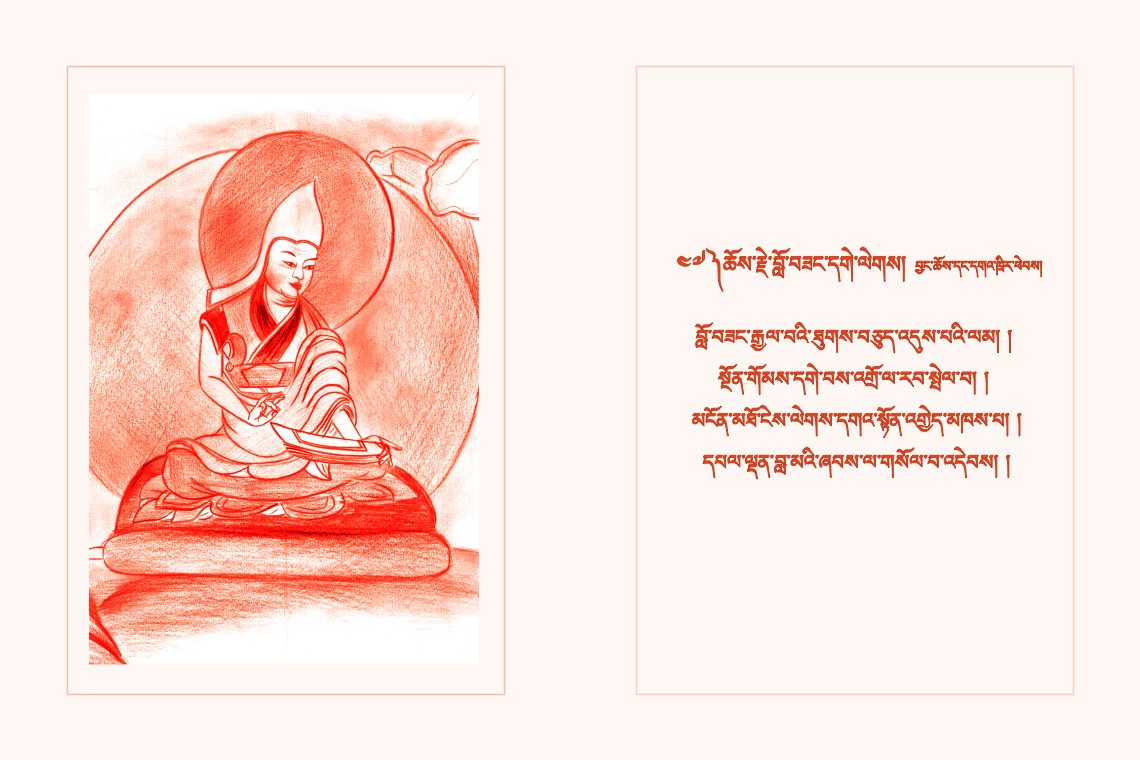 ༄༅༽ཆོས་རྗེ་བློ་བཟང་དགེ་ལེགས། བྱང་ཆོས་དང་དགའ་ཁྲིར་ཕེབས།
བློ་བཟང་རྒྱལ་བའི་ཐུགས་བཅུད་འདུས་པའི་ལམ། །
སྔོན་གོམས་དགེ་བས་འགྲོ་ལ་རབ་སྤེལ་བ། །
མངོན་མཐོ་ངེས་ལེགས་དགའ་སྟོན་འགྱེད་མཁས་པ། །
དཔལ་ལྡན་བླ་མའི་ཞབས་ལ་གསོལ་བ་འདེབས། །